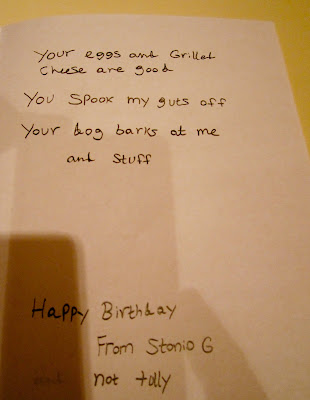 Your eggs and Grilled
Cheese are good
You Spook my guts off
Your dog barks at me
and Stuff
Happy Birthday
From Stonio G
not tolly